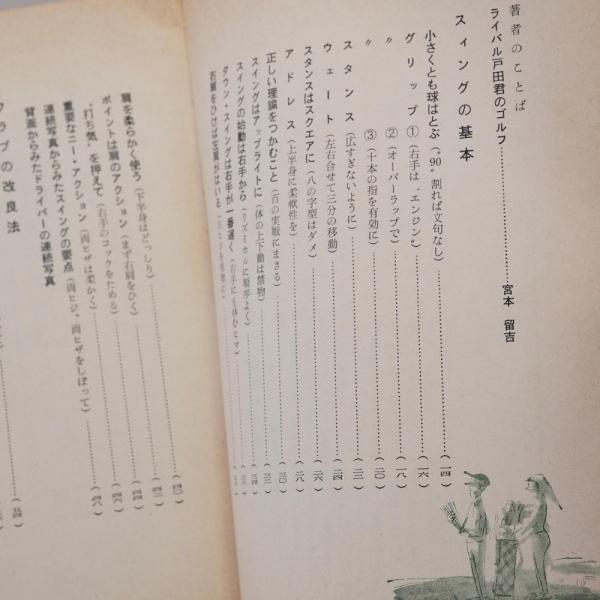 著者のことば
ライバル戸田君のゴルフ……………宮本 留吉
スイングの基本
小さくとも球はとぶ(〝90〟割れば文句なし)……………(一四)
グリップ ①(右手は〝エンジン〟)……………(一六)
〃 ②(オーバーラップで)……………(一八)
〃 ③(十本の指を有効に)……………(二〇)
スタンス(広すぎないように)……………(二二)
ウェート(左右合せて三分の移動)……………(二四)
スタンスはスクエアに(八の字型はダメ)……………(二六)
アドレス(上半身に柔軟性を)……………(二八)
正しい理論をつかむこと(百の実戦にまさる)……………(三〇)
スイングはアップライトに(体の上下動は禁物)……………(三二)
スイングの始動は右手から(リズミカルに順序よく)……………(三四)
ダウン・スイングは右手が一番遅く(右手にも休むヒマ)
右肩をひけば左肩がはいる
肩を柔らかく使う(下半身はどっしり)……………(四〇)
ポイントは肩のアクション(まず右肩をひく)……………(四二)
〝打ち気〟を押えて(右手のコックをためる)……………(四六)
重要なニー・アクション(両ヒザは柔かく)……………(四八)
連続写真からみたスイングの要点(両ヒジ、両ヒザをしぼって)
背面からみたドライバーの連続写真
クラブの改良法
(五四)